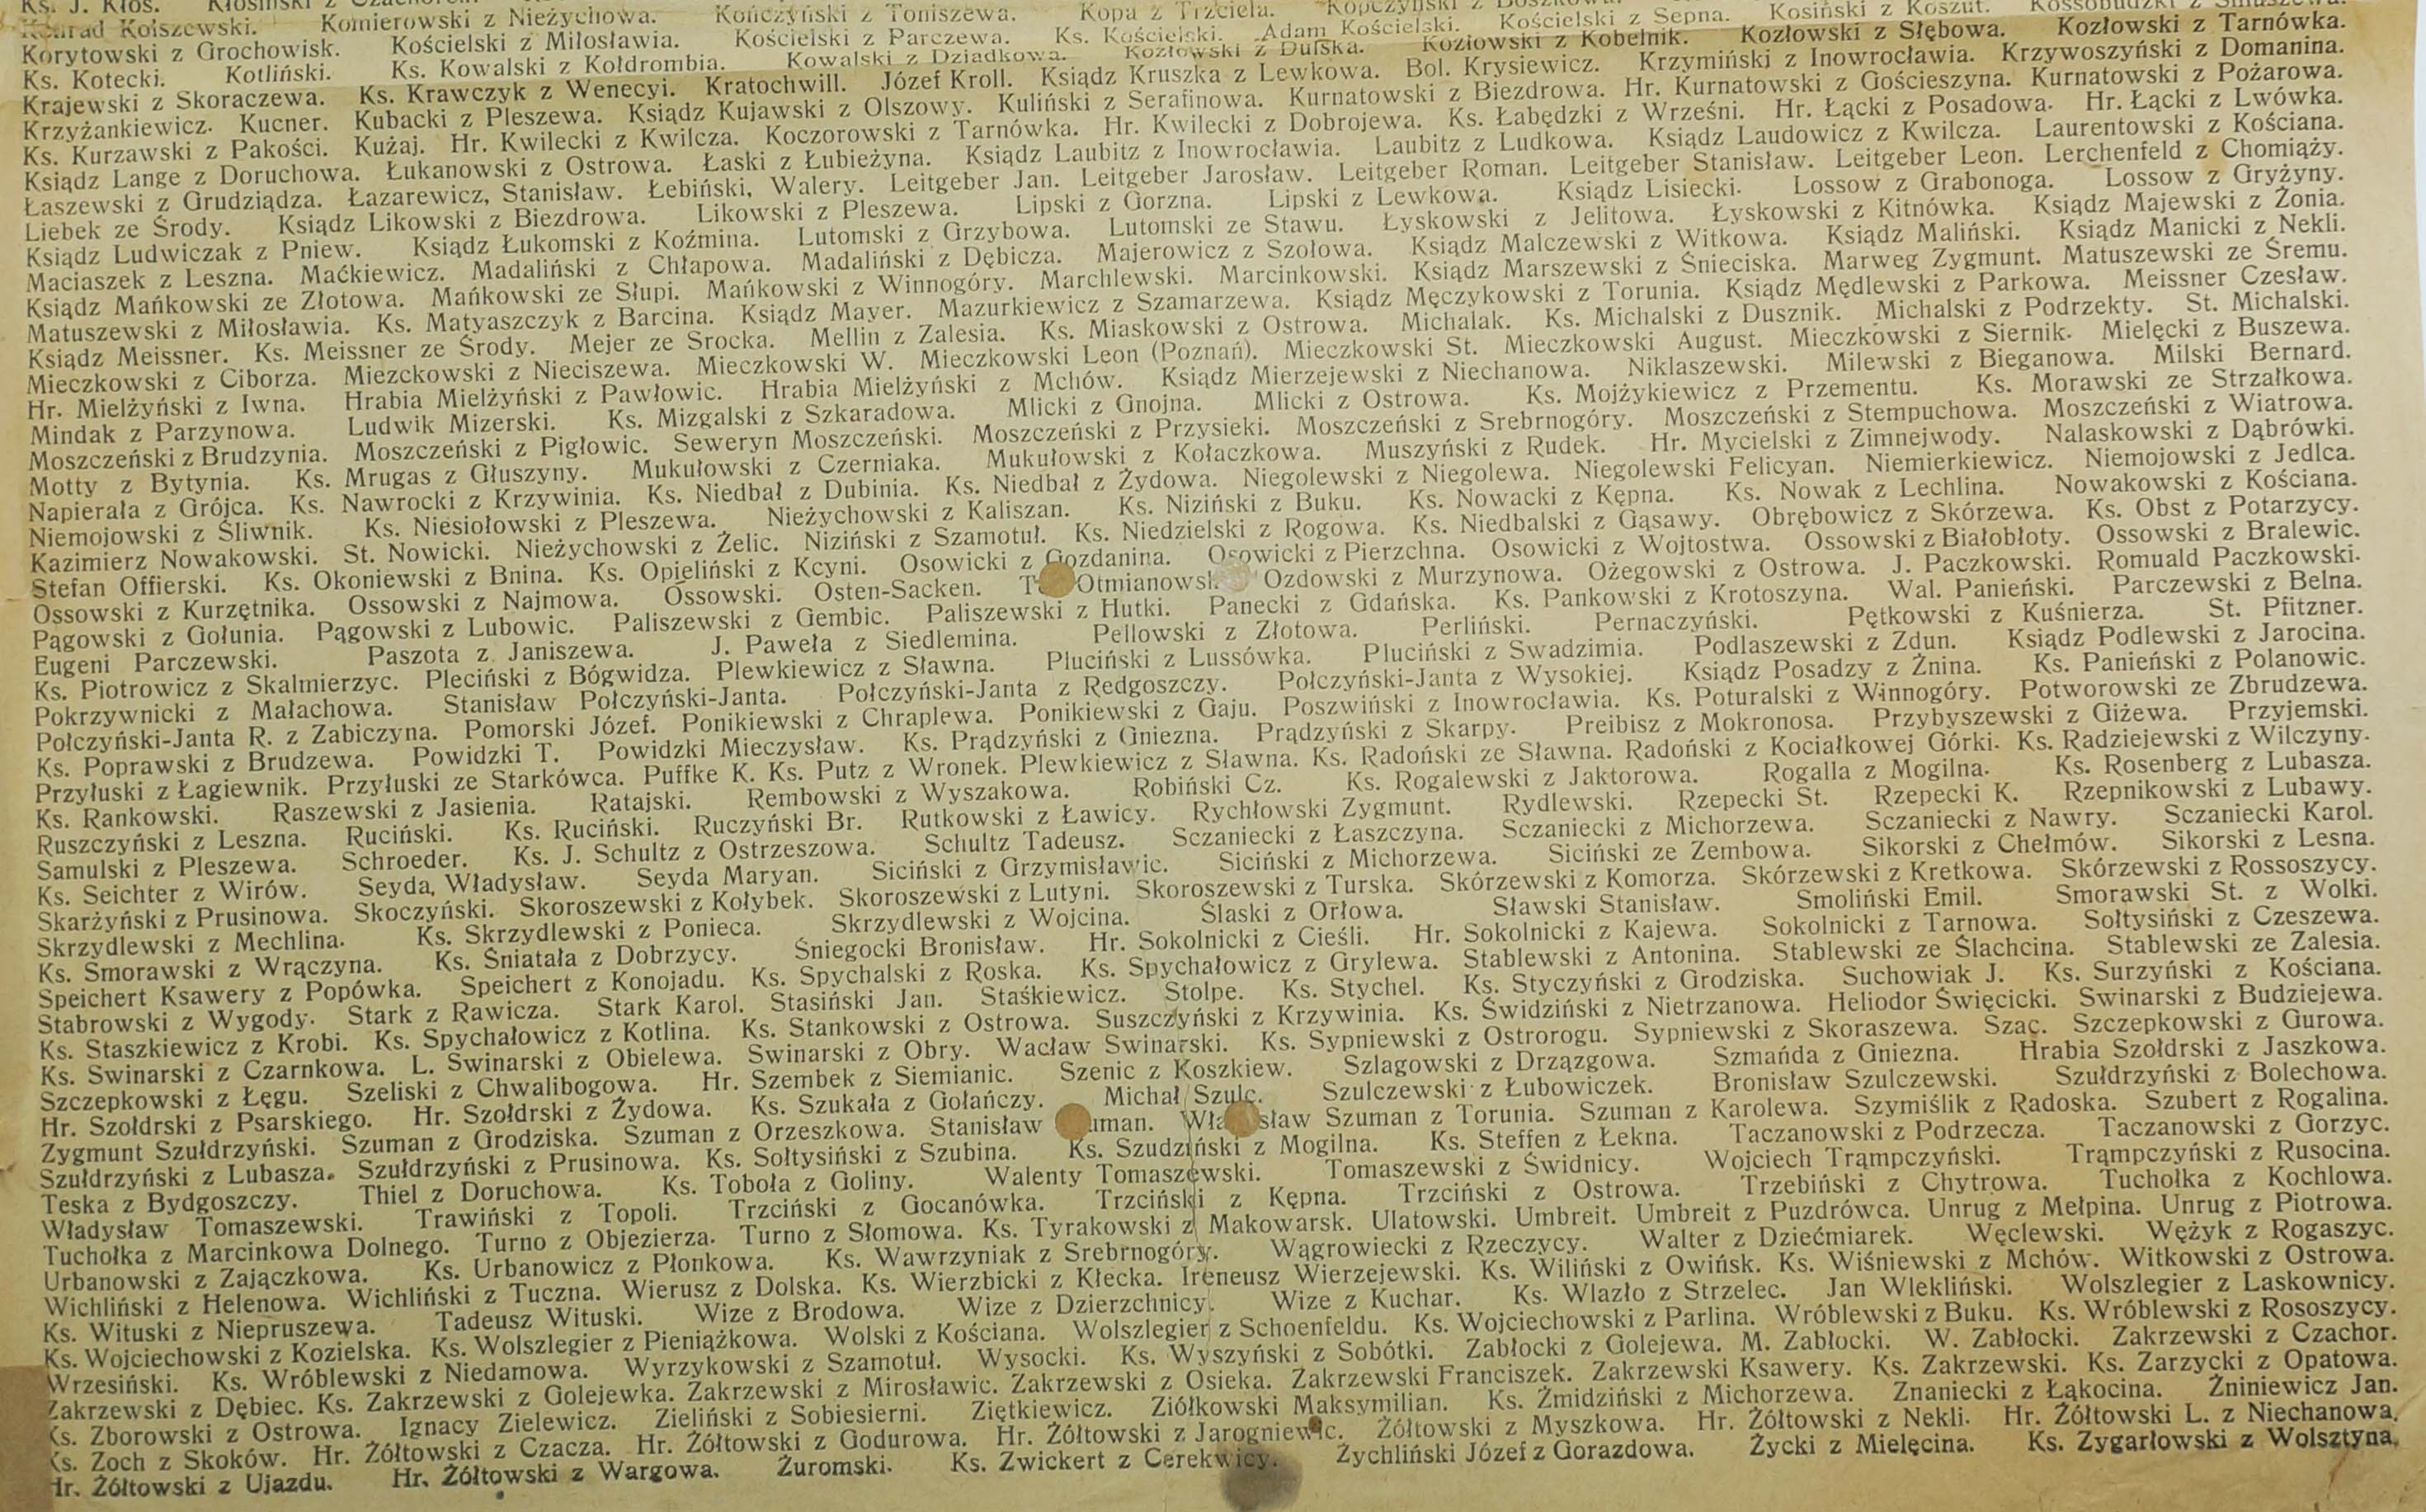 Ks. J. Kłos.
Konrad Kolszewski. Komierowski z Nieżychowa. Kończyński z Toniszewa. Kopa z Trzciela.
Korytowski z Grochowisk. Kościelski z Miłosławia. Kościelski z Parczewa. Ks. Kościelski. Adam Kościelski. Kościelski z Sepna. Kosiński z Koszut.
Ks. Kotecki. Kotliński. Ks. Kowalski z Kołdrombia. Kowalski z Dziadkowa. Kozłowski z Dulska. Kozłowski z Kobelnik. Kozłowski z Słębowa. Kozłowski z Tarnówka.
Krajewski z Skoraczewa. Ks. Krawczyk z Wenecyi. Kratochwill. Józef Kroll. Ksiądz Kruszka z Lewkowa. Bol. Krysiewicz. Krzymiński z Inowrocławia. Krzywoszyński z Domanina.
Krzyżankiewicz. Kucner. Kubacki z Pleszewa. Ksiądz Kujawski z Olszowy. Kuliński z Serafinowa. Kurnatowski z Biezdrowa. Hr. Kurnatowski z Gościeszyna. Kurnatowski z Pożarowa.
Ks. Kurzawski z Pakości. Kużaj. Hr. Kwilecki z Kwilcza. Koczorowski z Tarnówka. Hr. Kwilecki z Dobrojewa. Ks. Łabędzki z Wrześni. Hr. Łącki z Posadowa. Hr. Łącki z Lwówka.
Ksiądz Lange z Doruchowa. Łukanowski z Ostrowa. Łaski z Łubieżyna. Ksiądz Laubitz z Inowrocławia. Laubitz z Ludkowa. Ksiądz Laudowicz z Kwilcza. Laurentowski z Kościana.
Łaszewski z Grudziądza. Łazarewicz, Stanisław. Łebiński, Walery. Leitgeber Jan. Leitgeber Jarosław. Leitgeber Roman. Leitgeber Stanisław. Leitgeber Leon. Lerchenfeld z Chomiąży.
Liebek ze Środy. Ksiądz Likowski z Biezdrowa. Likowski z Pleszewa. Lipski z Gorzna. Lipski z Lewkowa. Ksiądz Lisiecki. Lossow z Grabonoga. Lossow z Gryżyny.
Ksiądz Ludwiczak z Pniew. Ksiądz Łukomski z Koźmina. Lutomski z Grzybowa. Lutomski ze Stawu. Łyskowski z Jelitowa. Łyskowski z Kitnówka. Ksiądz Majewski z Żonia.
Maciaszek z Leszna. Maćkiewicz. Madaliński z Chłapowa. Madaliński z Dębicza. Majerowicz z Szołowa. Ksiądz Malczewski z Witkowa. Ksiądz Maliński. Ksiądz Manicki z Nekli.
Ksiądz Mańkowski ze Złotowa. Mańkowski ze Słupi. Mańkowski z Winnogóry. Marchlewski. Marcinkowski. Ksiądz Marszewski z Śnieciska. Marweg Zygmunt. Matuszewski ze Śremu.
Matuszewski z Miłosławia. Ks. Matyaszczyk z Barcina. Ksiądz Mayer. Mazurkiewicz z Szamarzewa. Ksiądz Męczykowski z Torunia. Ksiądz Mędlewski z Parkowa. Meissner Czesław.
Ksiądz Meissner. Ks. Meissner ze Środy. Mejer ze Srocka. Mellin z Zalesia. Ks. Miaskowski z Ostrowa. Michalak. Ks. Michalski z Dusznik. Michalski z Podrzekty. St. Michalski.
Mieczkowski z Ciborza. Miezckowski z Nieciszewa. Mieczkowski W. Mieczkowski Leon (Poznań). Mieczkowski St. Mieczkowski August. Mieczkowski z Siernik. Mielęcki z Buszewa.
Hr. Mielżyński z Iwna. Hrabia Mielżyński z Pawłowic. Hrabia Mielżyński z Mchów. Ksiądz Mierzejewski z Niechanowa. Niklaszewski. Milewski z Bieganowa. Milski Bernard.
Mindak z Parzynowa. Ludwik Mizerski. Ks. Mizgalski z Szkaradowa. Mlicki z Gnojna. Mlicki z Ostrowa. Ks. Mojżykiewicz z Przementu. Ks. Morawski ze Strzałkowa.
Moszczeński z Brudzynia. Moszczeński z Pigłowic. Seweryn Moszczeński. Moszczeński z Przysieki. Moszczeński z Srebrnogóry. Moszczeński z Stempuchowa. Moszczeński z Wiatrowa.
Motty z Bytynia. Ks. Mrugas z Głuszyny. Mukułowski z Czerniaka. Mukułowski z Kołaczkowa. Muszyński z Rudek. Hr. Mycielski z Zimnejwody. Nalaskowski z Dąbrówki.
Napierała z Grójca. Ks. Nawrocki z Krzywinia. Ks. Niedbał z Dubinia. Ks. Niedbał z Żydowa. Niegolewski z Niegolewa. Niegolewski Felicyan. Niemierkiewicz. Niemojowski z Jedlca.
Niemojowski z Śliwnik. Ks. Niesiołowski z Pleszewa. Nieżychowski z Kaliszan. Ks. Niziński z Buku. Ks. Nowacki z Kępna. Ks. Nowak z Lechlina. Nowakowski z Kościana.
Kazimierz Nowakowski. St. Nowicki. Nieżychowski z Żelic. Niziński z Szamotuł. Ks. Niedzielski z Rogowa. Ks. Niedbalski z Gąsawy. Obrębowicz z Skórzewa. Ks. Obst z Potarzycy.
Stefan Offierski. Ks. Okoniewski z Bnina. Ks. Opieliński z Kcyni. Osowicki z Gozdanina. Osowicki z Pierzchna. Osowicki z Wojtostwa. Ossowski z Białobłoty. Ossowski z Bralewic.
Ossowski z Kurzętnika. Ossowski z Najmowa. Ossowski. Osten-Sacken. Ozdowski z Murzynowa. Ożegowski z Ostrowa. J. Paczkowski. Romuald Paczkowski.
Pągowski z Gołunia. Pągowski z Lubowic. Paliszewski z Gembic. Paliszewski z Hutki. Panecki z Gdańska. Ks. Pankowski z Krotoszyna. Wal. Panieński. Parczewski z Belna.
Eugeni Parczewski. Paszota z Janiszewa. J. Paweła z Siedlemina. Pellowski z Złotowa. Perliński. Pernaczyński. Pętkowski z Kuśnierza. St. Pfitzner.
Ks. Piotrowicz z Skalmierzyc. Pleciński z Bógwidza. Plewkiewicz z Sławna. Pluciński z Lussówka. Pluciński z Swadzimia. Podlaszewski z Zdun. Ksiądz Podlewski z Jarocina.
Pokrzywnicki z Małachowa. Stanisław Połczyński-Janta. Połczyński-Janta z Redgoszczy. Połczyński-Janta z Wysokiej. Ksiądz Posadzy z Żnina. Ks. Panieński z Polanowic.
Połczyński-Janta R. z Zabiczyna. Pomorski Józef. Ponikiewski z Chraplewa. Ponikiewski z Gaju. Poszwiński z Inowrocławia. Ks. Poturalski z Winnogóry. Potworowski ze Zbrudzewa.
Ks. Poprawski z Brudzewa. Powidzki T. Powidzki Mieczysław. Ks. Prądzyński z Gniezna. Prądzyński z Skarpy. Preibisz z Mokronosa. Przybyszewski z Giżewa. Przyjemski.
Przyłuski z Łagiewnik. Przyłuski ze Starkówca. Puffke K. Ks. Putz z Wronek. Plewkiewicz z Sławna. Ks. Radoński ze Sławna. Radoński z Kociałkowej Górki. Ks. Radziejewski z Wilczyny.
Ks. Rankowski. Raszewski z Jasienia. Ratajski. Rembowski z Wyszakowa. Robiński Cz. Ks. Rogalewski z Jaktorowa. Rogalla z Mogilna. Ks. Rosenberg z Lubasza.
Ruszczyński z Leszna. Ruciński. Ks. Ruciński. Ruczyński Br. Rutkowski z Ławicy. Rychłowski Zygmunt. Rydlewski. Rzepecki St. Rzepecki K. Rzepnikowski z Lubawy.
Samulski z Pleszewa. Schroeder. Ks. J. Schultz z Ostrzeszowa. Schultz Tadeusz. Sczaniecki z Łaszczyna. Sczaniecki z Michorzewa. Sczaniecki z Nawry. Sczaniecki Karol.
Ks. Seichter z Wirów. Seyda, Władysław. Seyda Maryan. Siciński z Grzymisławic. Siciński z Michorzewa. Siciński ze Zembowa. Sikorski z Chełmów. Sikorski z Lesna.
Skarżyński z Prusinowa. Skoczyński. Skoroszewski z Kołybek. Skoroszewski z Lutyni. Skoroszewski z Turska. Skórzewski z Komorza. Skórzewski z Kretkowa. Skórzewski z Rossoszycy.
Skrzydlewski z Mechlina. Ks. Skrzydlewski z Ponieca. Skrzydlewski z Wojcina. Ślaski z Orłowa. Sławski Stanisław. Smoliński Emil. Smorawski St. z Wolki.
Ks. Smorawski z Wrączyna. Ks. Śniatała z Dobrzycy. Śniegocki Bronisław. Hr. Sokolnicki z Cieśli. Hr. Sokolnicki z Kajewa. Sokolnicki z Tarnowa. Sołtysiński z Czeszewa.
Speichert Ksawery z Popówka. Speichert z Konojadu. Ks. Spychalski z Roska. Ks. Spychałowicz z Grylewa. Stablewski z Antonina. Stablewski ze Ślachcina. Stablewski ze Zalesia.
Stabrowski z Wygody. Stark z Rawicza. Stark Karol. Stasiński Jan. Staśkiewicz. Stolpe. Ks. Stychel. Ks. Styczyński z Grodziska. Suchowiak J. Ks. Surzyński z Kościana.
Ks. Staszkiewicz z Krobi. Ks. Spychałowicz z Kotlina. Ks. Stankowski z Ostrowa. Suszczyński z Krzywinia. Ks. Świdziński z Nietrzanowa. Heliodor Święcicki. Swinarski z Budziejewa.
Ks. Swinarski z Czarnkowa. L. Swinarski z Obielewa. Swinarski z Obry. Wacław Swinarski. Ks. Sypniewski z Ostrorogu. Sypniewski z Skoraszewa. Szac. Szczepkowski z Gurowa.
Szczepkowski z Łęgu. Szeliski z Chwalibogowa. Hr. Szembek z Siemianic. Szenic z Koszkiew. Szlagowski z Drzązgowa. Szmańda z Gniezna. Hrabia Szołdrski z Jaszkowa.
Hr. Szołdrski z Psarskiego. Hr. Szołdrski z Żydowa. Ks. Szukała z Gołańczy. Michał Szulc. Szulczewski z Łubowiczek. Bronisław Szulczewski. Szułdrzyński z Bolechowa.
Zygmunt Szułdrzyński. Szuman z Grodziska. Szuman z Orzeszkowa. Stanisław Szuman z Torunia. Szuman z Karolewa. Szymiślik z Radoska. Szubert z Rogalina.
Szułdrzyński z Lubasza. Szułdrzyński z Prusinowa. Ks. Sołtysiński z Szubina. Ks. Szudziński z Mogilna. Ks. Steffen z Łekna. Taczanowski z Podrzecza. Taczanowski z Gorzyc.
Teska z Bydgoszczy. Thiel z Doruchowa. Ks. Tobola z Goliny. Walenty Tomaszewski. Tomaszewski z Świdnicy. Wojciech Trąmpczyński. Trąmpczyński z Rusocina.
Władysław Tomaszewski. Trawiński z Topoli. Trzciński z Gocanówka. Trzciński z Kępna. Trzciński z Ostrowa. Trzebiński z Chytrowa. Tuchołka z Kochlowa.
Tuchołka z Marcinkowa Dolnego. Turno z Objezierza. Turno z Słomowa. Ks. Tyrakowski z Makowarsk. Ulatowski. Umbreit. Umbreit z Puzdrówca. Unrug z Mełpina. Unrug z Piotrowa.
Urbanowski z Zajączkowa. Ks. Urbanowicz z Płonkowa. Ks. Wawrzyniak z Srebrnogóry. Wągrowiecki z Rzeczycy. Walter z Dziećmiarek. Węclewski. Wężyk z Rogaszyc.
Wichliński z Helenowa. Wichliński z Tuczna. Wierusz z Dolska. Ks. Wierzbicki z Kłecka. Ireneusz Wierzejewski. Ks. Wiliński z Owińsk. Ks. Wiśniewski z Mchów. Witkowski z Ostrowa.
Ks. Wituski z Niepruszewa. Tadeusz Wituski. Wize z Brodowa. Wize z Dzierzchnicy. Wize z Kuchar. Ks. Wlazło z Strzelec. Jan Wlekliński. Wolszlegier z Laskownicy.
Ks. Wojciechowski z Kozielska. Ks. Wolszlegier z Pieniążkowa. Wolski z Kościana. Wolszlegier z Schoenfeldu. Ks. Wojciechowski z Parlina. Wróblewski z Buku. Ks. Wróblewski z Rososzycy.
Wrzesiński. Ks. Wróblewski z Niedamowa. Wyrzykowski z Szamotuł. Wysocki. Ks. Wyszyński z Sobótki. Zabłocki z Golejewa. M. Zabłocki. W. Zabłocki. Zakrzewski z Czachor.
Zakrzewski z Dębiec. Ks. Zakrzewski z Golejewka. Zakrzewski z Mirosławic. Zakrzewski z Osieka. Zakrzewski Franciszek. Zakrzewski Ksawery. Ks. Zakrzewski. Ks. Zarzycki z Opatowa.
Ks. Zborowski z Ostrowa. Ignacy Zielewicz. Zieliński z Sobiesierni. Ziętkiewicz. Ziółkowski Maksymilian. Ks. Żmidziński z Michorzewa. Znaniecki z Łąkocina. Żniniewicz Jan.
Ks. Zoch z Skoków. Hr. Żółtowski z Czacza. Hr. Żółtowski z Godurowa. Hr. Żółtowski z Jarogniewic. Żółtowski z Myszkowa. Hr. Żółtowski z Nekli. Hr. Żółtowski L. z Niechanowa.
Hr. Żółtowski z Ujazdu. Hr. Żółtowski z Wargowa. Żuromski. Ks. Zwickert z Cerekwicy. Żychliński Józef z Gorazdowa. Życki z Mielęcina. Ks. Zygarłowski z Wolsztyna.